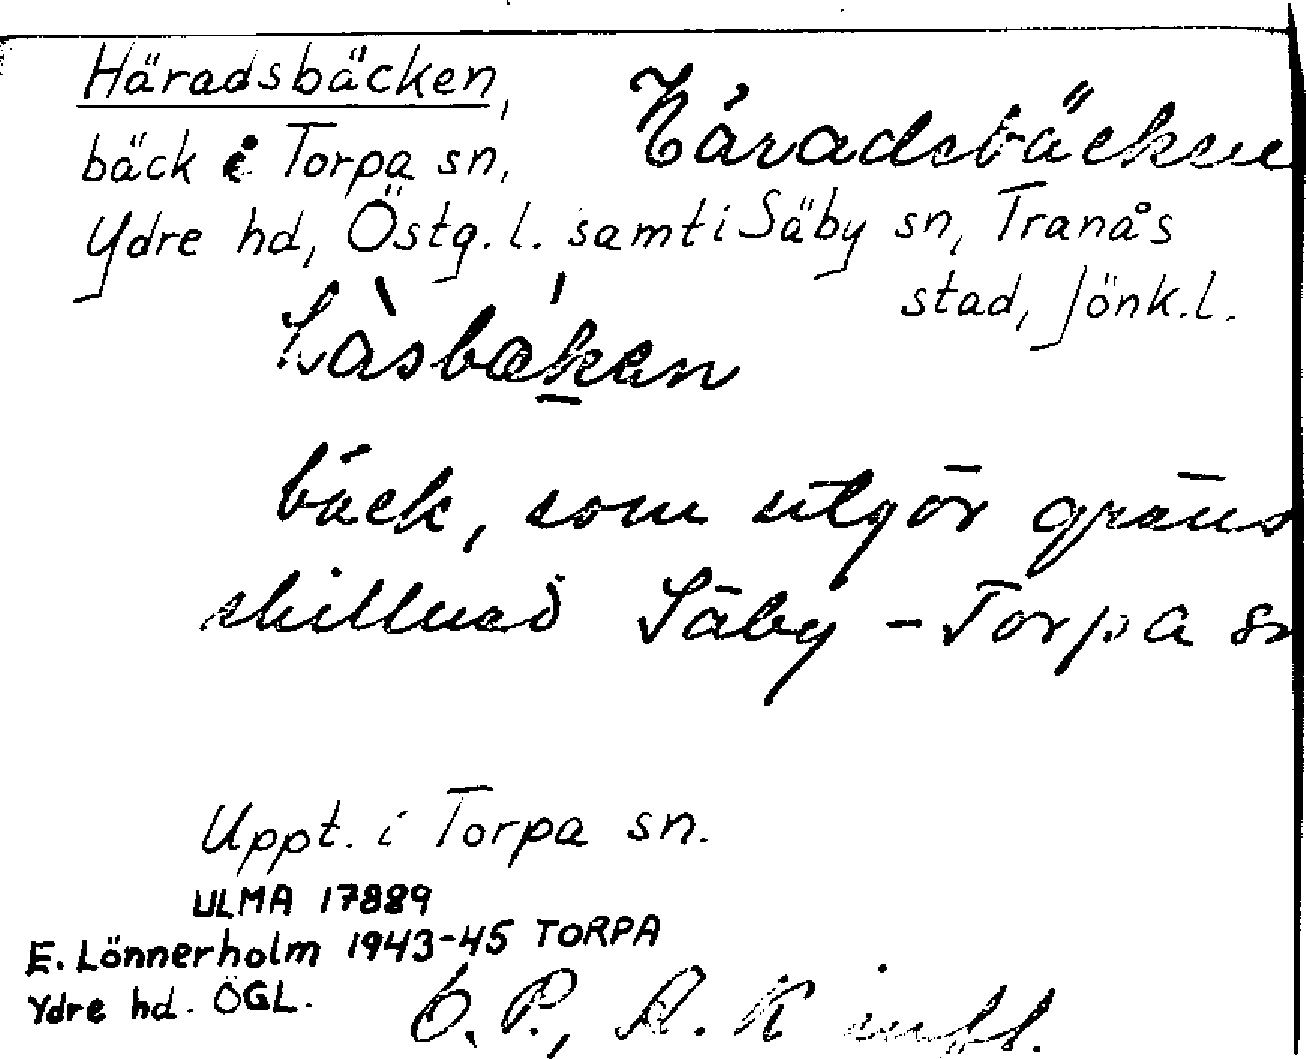 Häradsbäcken,
Häradsbäcken
bäck i Torpa sn,
Ydre hd, Östg. l. samt i Säby sn, Tranås
stad, Jönk.l.
bäck, som utgör gräns
skillnad Säby - Torpa sn
Uppt. i Torpa sn.
ULMA 17889
E. Lönnerholm 1943-45 TORPA
Ydre hd. ÖGL.
O. P., A. K